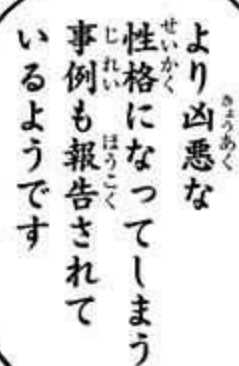 より凶悪な
性格になってしまう
事例も報告されて
いるようです